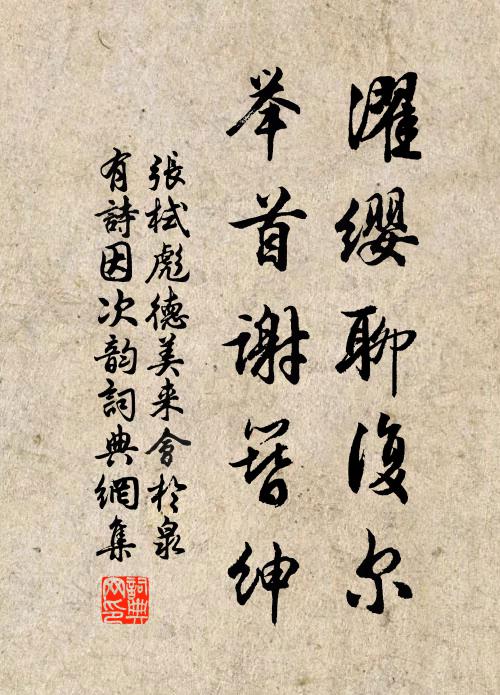 濯缨聊復尔
举首谢簪绅
張栻彪德美来會於泉
有詩因次韵詞典網集
詞典
网印